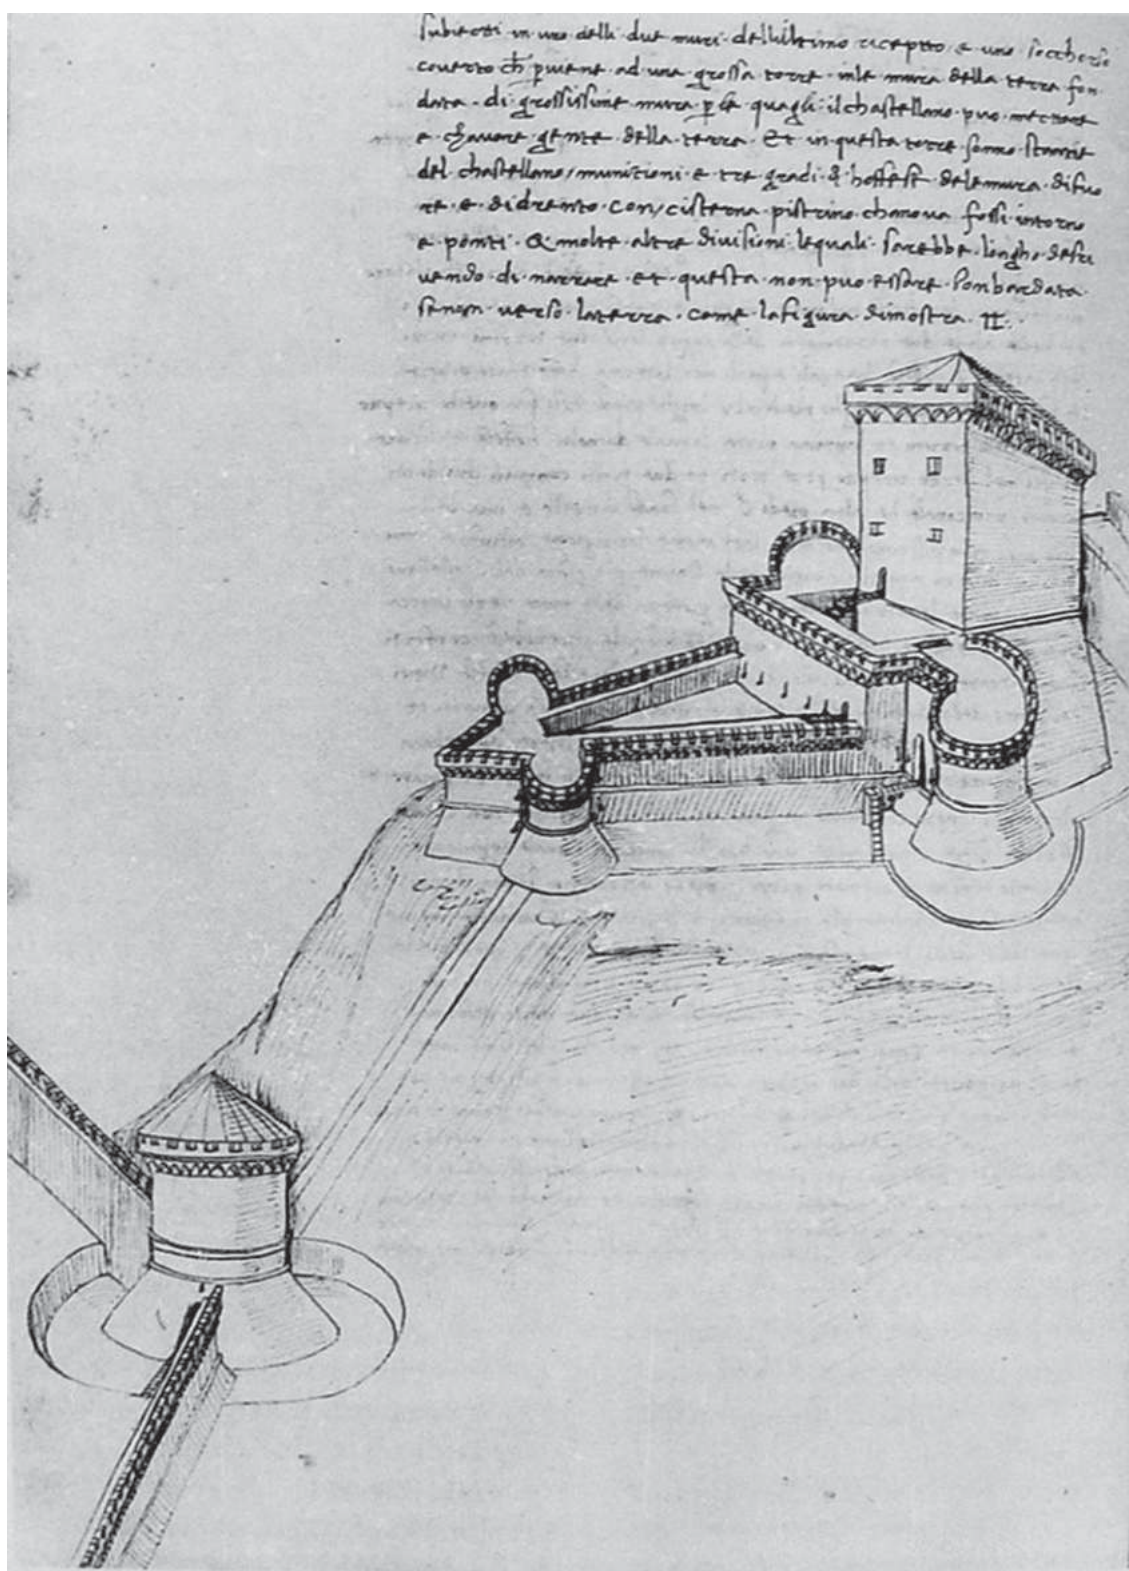 subietti in uno delli due muri dell ultimo riceptto e uno soccherso
coverto ch perviene ad una grossa torre inle mura della terra fon
data di grossissime mura p le quagli il chastellano puo mectare
e chavare gente della terra Et in questa torre sonno stantie
del chastellano/munitioni e tre gradi d hoffese dele mura difuo
re e didrento con/cisterna pistrino chanova fossi intorno
e ponti & molte altre divisioni lequali sarebbe longho descri
vendo di narrare et questa non puo essare bonbardata
senon verso laterra come lafigura dimostra